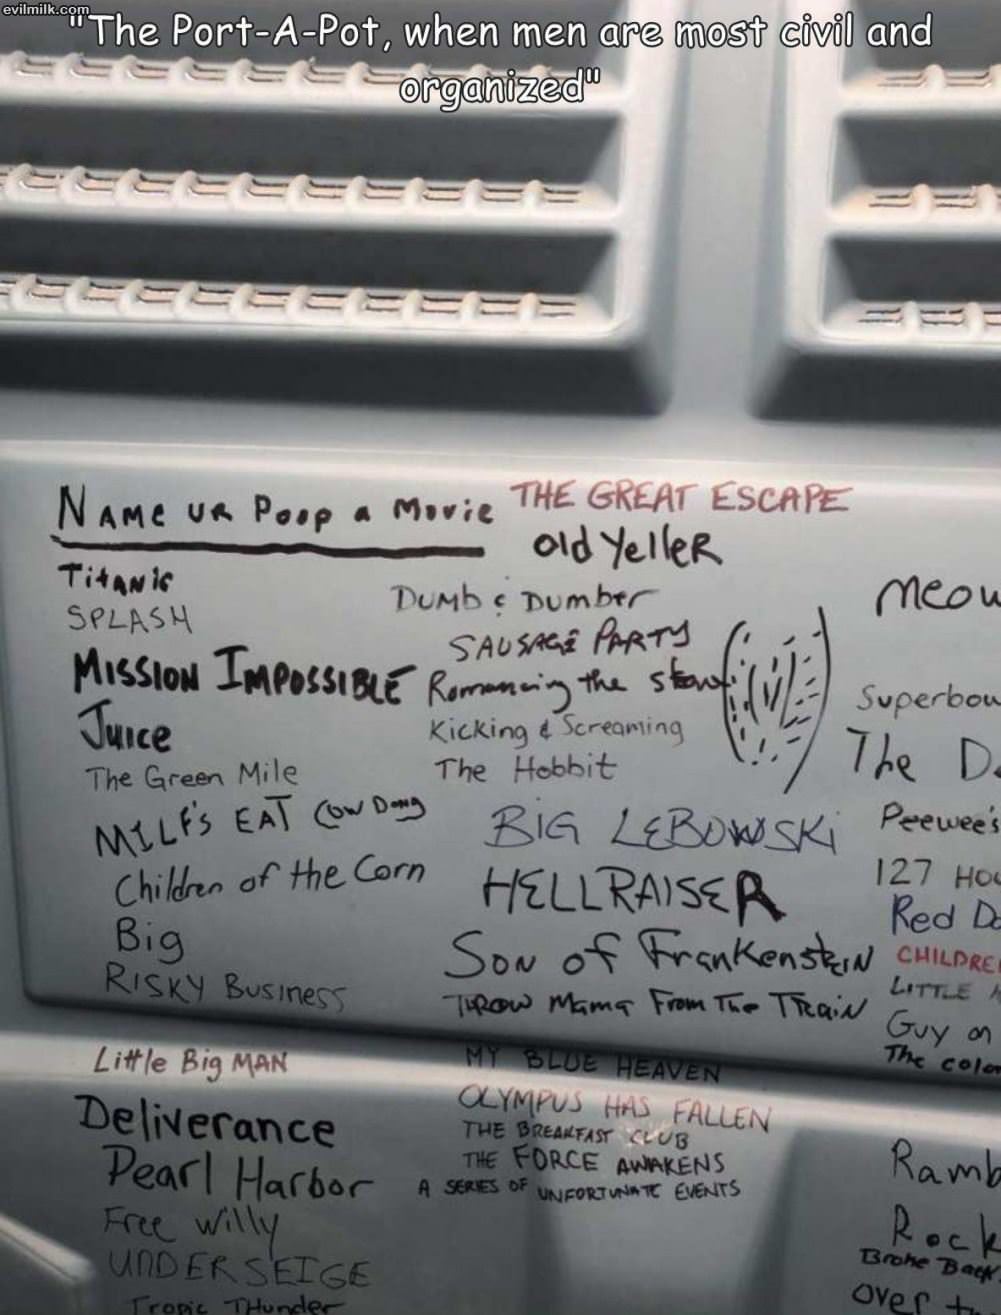 evilmilk.com
"The Port-A-Pot, when men are most civil and
organized"
NAME UR Poop a Movie
TitANic
SPLASH
MISSION IMPOSSIBLE
Juice
The Green Mile
MILF'S EAT COW DONG
Children of the Corn
Big
RISKY Business
Little Big MAN
Deliverance
Pearl Harbor
Free Willy
UNDER SEIGE
Tropic THunder
THE GREAT ESCAPE
Old YelleR
DUMb & DUMber
SAUSAGE PARTY
Romancing the
Kicking & Screaming
The Hobbit
BIG LEBOWSKi
HELLRAISER
SON of FrankensteiN
THROW MAMA From The TRaiN
MY BLUE HEAVEN
OLYMPUS HAS FALLEN
THE BREAKFAST CLUB
THE FORCE AWAKENS
A SERIES OF UNFORTUNATE EVENTS
Meow
Superbow
The D
Peewee's
127 HOU
Red Da
CHILDREN
LITTLE
Guy on
The color
Ramb
Rock
Broke Back
over